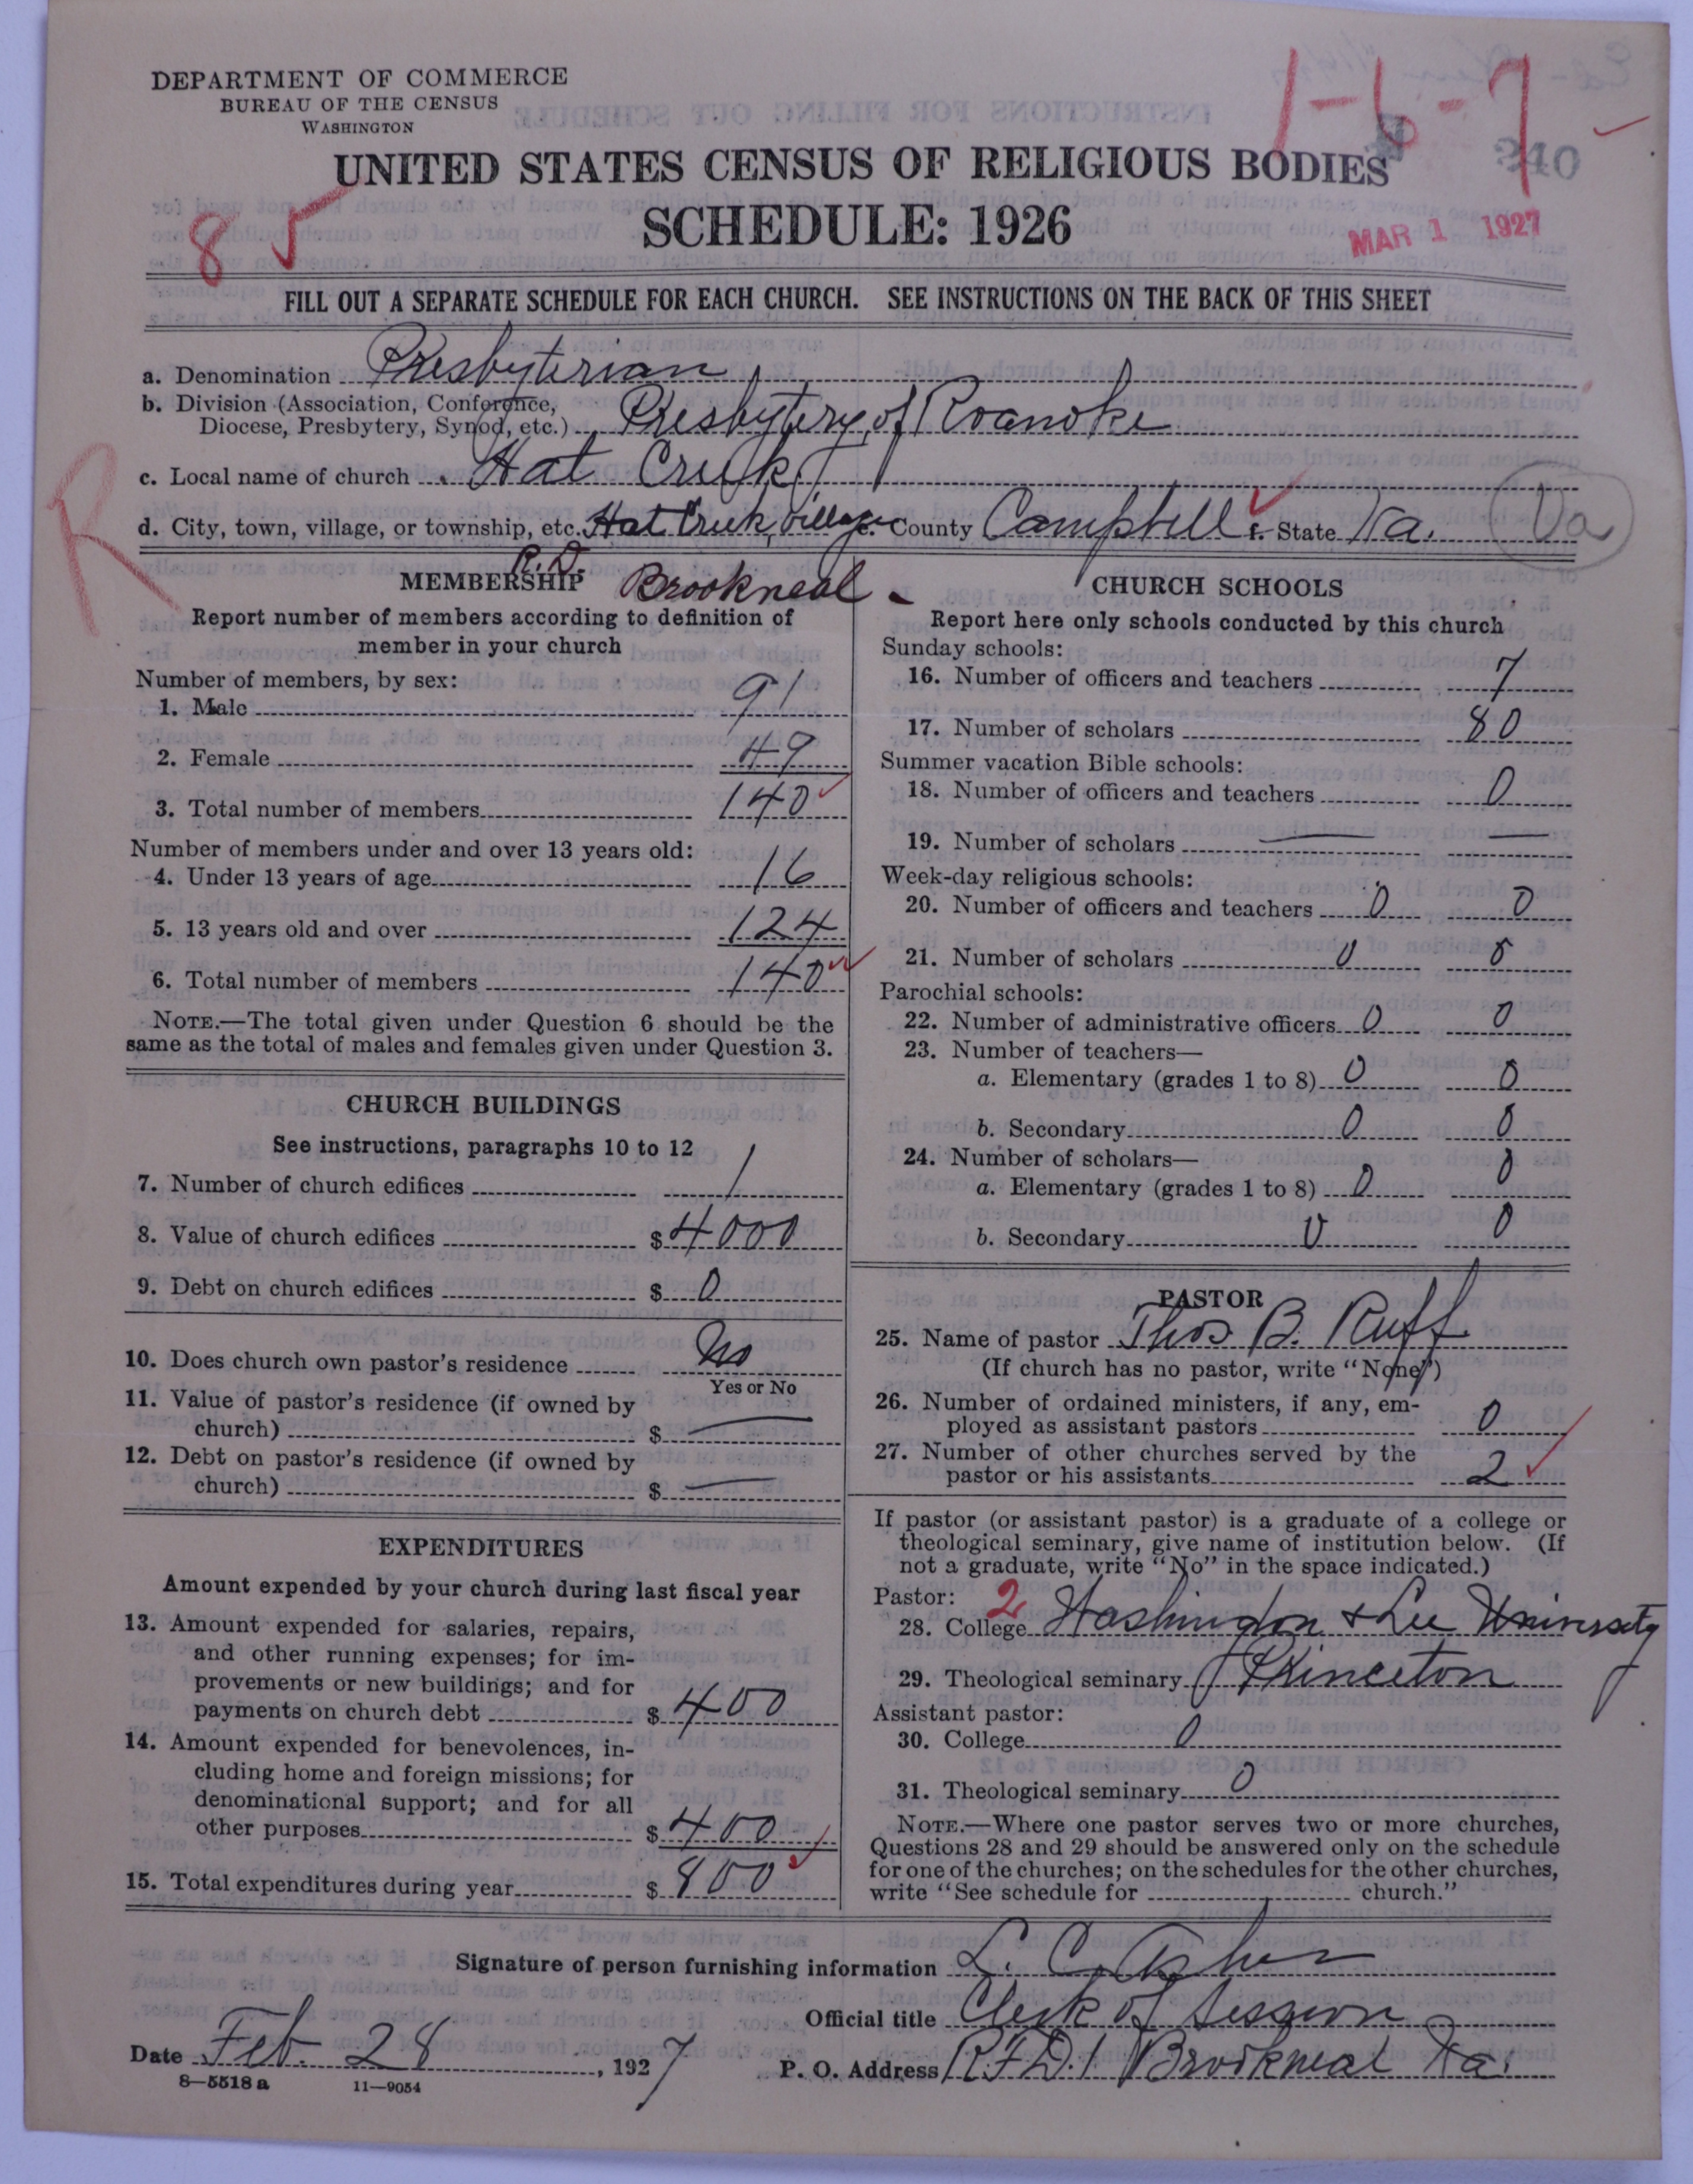 DEPARTMENT OF COMMERCE
BUREAU OF THE CENSUS
WASHINGTON
1-6-7
240
UNITED STATES CENSUS OF RELIGIOUS BODIES
SCHEDULE: 1926
8
MAR 1 1927
FILL OUT A SEPARATE SCHEDULE FOR EACH CHURCH. SEE INSTRUCTIONS ON THE BACK OF THIS SHEET
a. Denomination Presbyterian
b. Division (Association, Conference,
Diocese, Presbytery, Synod, etc.) Presbytery of Roanoke
c. Local name of church Hat Creek
R
d. City, town, village, or township, etc. Hat Creek, village e. County Campbell f. State Va. Va
R.D. Brookneal
MEMBERSHIP
Report number of members according to definition of
member in your church
Number of members, by sex:
1. Male 91
2. Female 49
3. Total number of members 140
Number of members under and over 13 years old:
4. Under 13 years of age 16
5. 13 years old and over 124
6. Total number of members 140
NOTE.—The total given under Question 6 should be the
same as the total of males and females given under Question 3.
CHURCH BUILDINGS
See instructions, paragraphs 10 to 12
7. Number of church edifices 1
8. Value of church edifices $4000
9. Debt on church edifices $ 0
10. Does church own pastor's residence No
Yes or No
11. Value of pastor's residence (if owned by
church) $ —
12. Debt on pastor's residence (if owned by
church) $ —
EXPENDITURES
Amount expended by your church during last fiscal year
13. Amount expended for salaries, repairs,
and other running expenses; for im-
provements or new buildings; and for
payments on church debt $ 400
14. Amount expended for benevolences, in-
cluding home and foreign missions; for
denominational support; and for all
other purposes $ 400
15. Total expenditures during year $ 800
CHURCH SCHOOLS
Report here only schools conducted by this church
Sunday schools:
16. Number of officers and teachers 7
17. Number of scholars 80
Summer vacation Bible schools:
18. Number of officers and teachers 0
19. Number of scholars — —
Week-day religious schools:
20. Number of officers and teachers 0 0
21. Number of scholars 0 0
Parochial schools:
22. Number of administrative officers 0 0
23. Number of teachers—
a. Elementary (grades 1 to 8) 0 0
b. Secondary 0 0
24. Number of scholars—
a. Elementary (grades 1 to 8) 0 0
b. Secondary 0 0
PASTOR
25. Name of pastor Thos B. Ruff
(If church has no pastor, write "None")
26. Number of ordained ministers, if any, em-
ployed as assistant pastors 0
27. Number of other churches served by the
pastor or his assistants 2
If pastor (or assistant pastor) is a graduate of a college or
theological seminary, give name of institution below. (If
not a graduate, write "No" in the space indicated.)
Pastor: 2
28. College Washington & Lee University
29. Theological seminary Princeton
Assistant pastor:
30. College 0
31. Theological seminary 0
NOTE.—Where one pastor serves two or more churches,
Questions 28 and 29 should be answered only on the schedule
for one of the churches; on the schedules for the other churches,
write "See schedule for church."
Signature of person furnishing information L. C. Asher
Official title Clerk of Session
Date Feb. 28, 1927
P. O. Address R.F.D. 1 Brookneal Va.
8—5518 a 11—9054